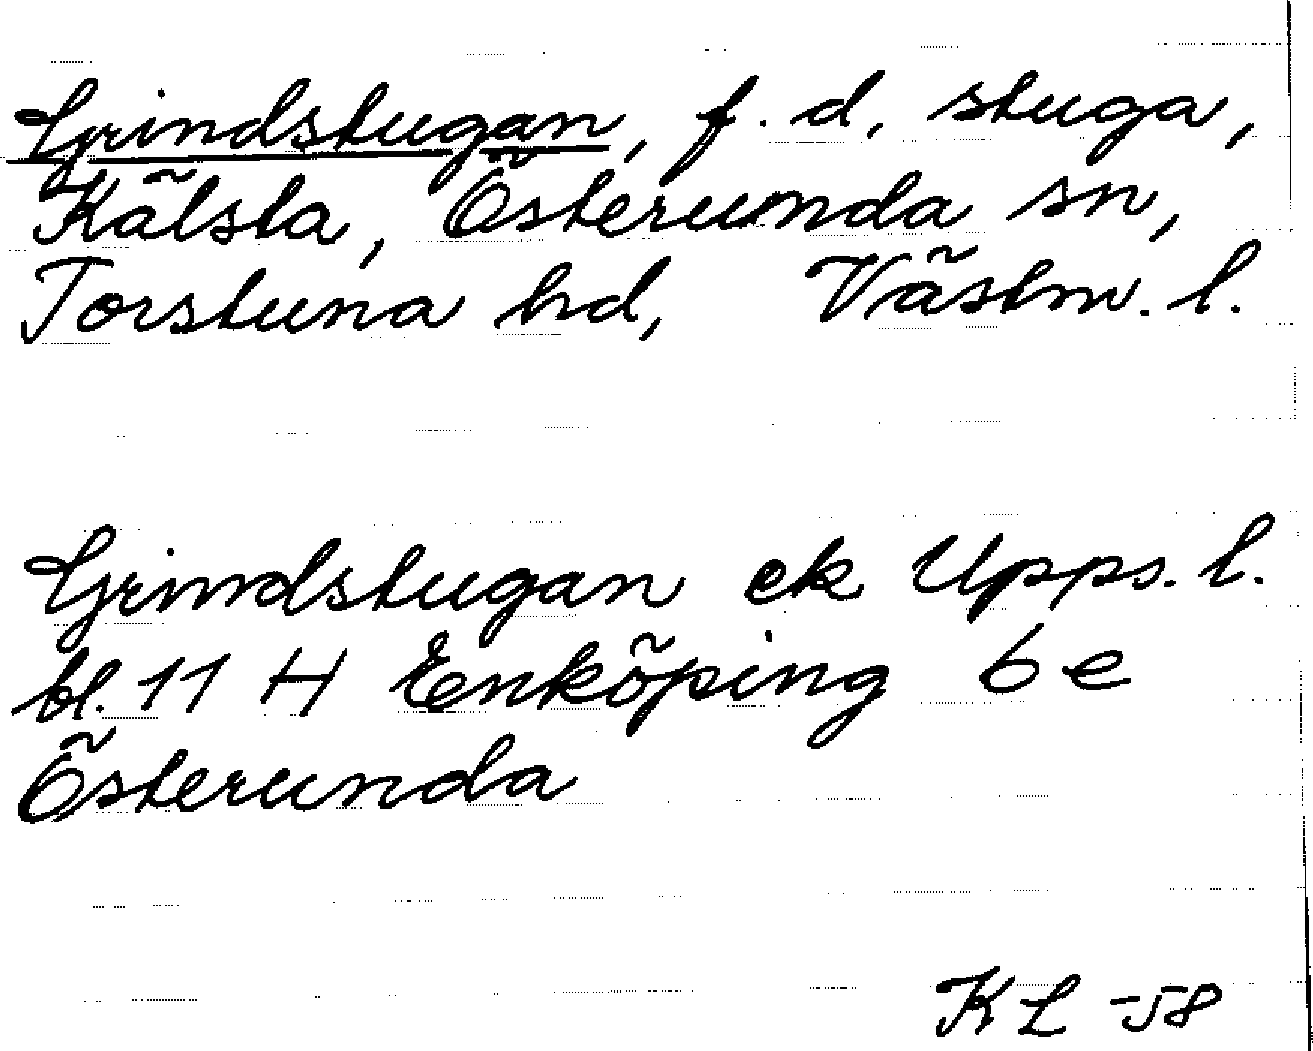 Grindstugan, f.d. stuga,
Kälsta, Österunda sn,
Torstuna hd, Västm. l.
Grindstugan ek Upps. l.
bl. 11 H Enköping 6 e
Österunda
KL -58